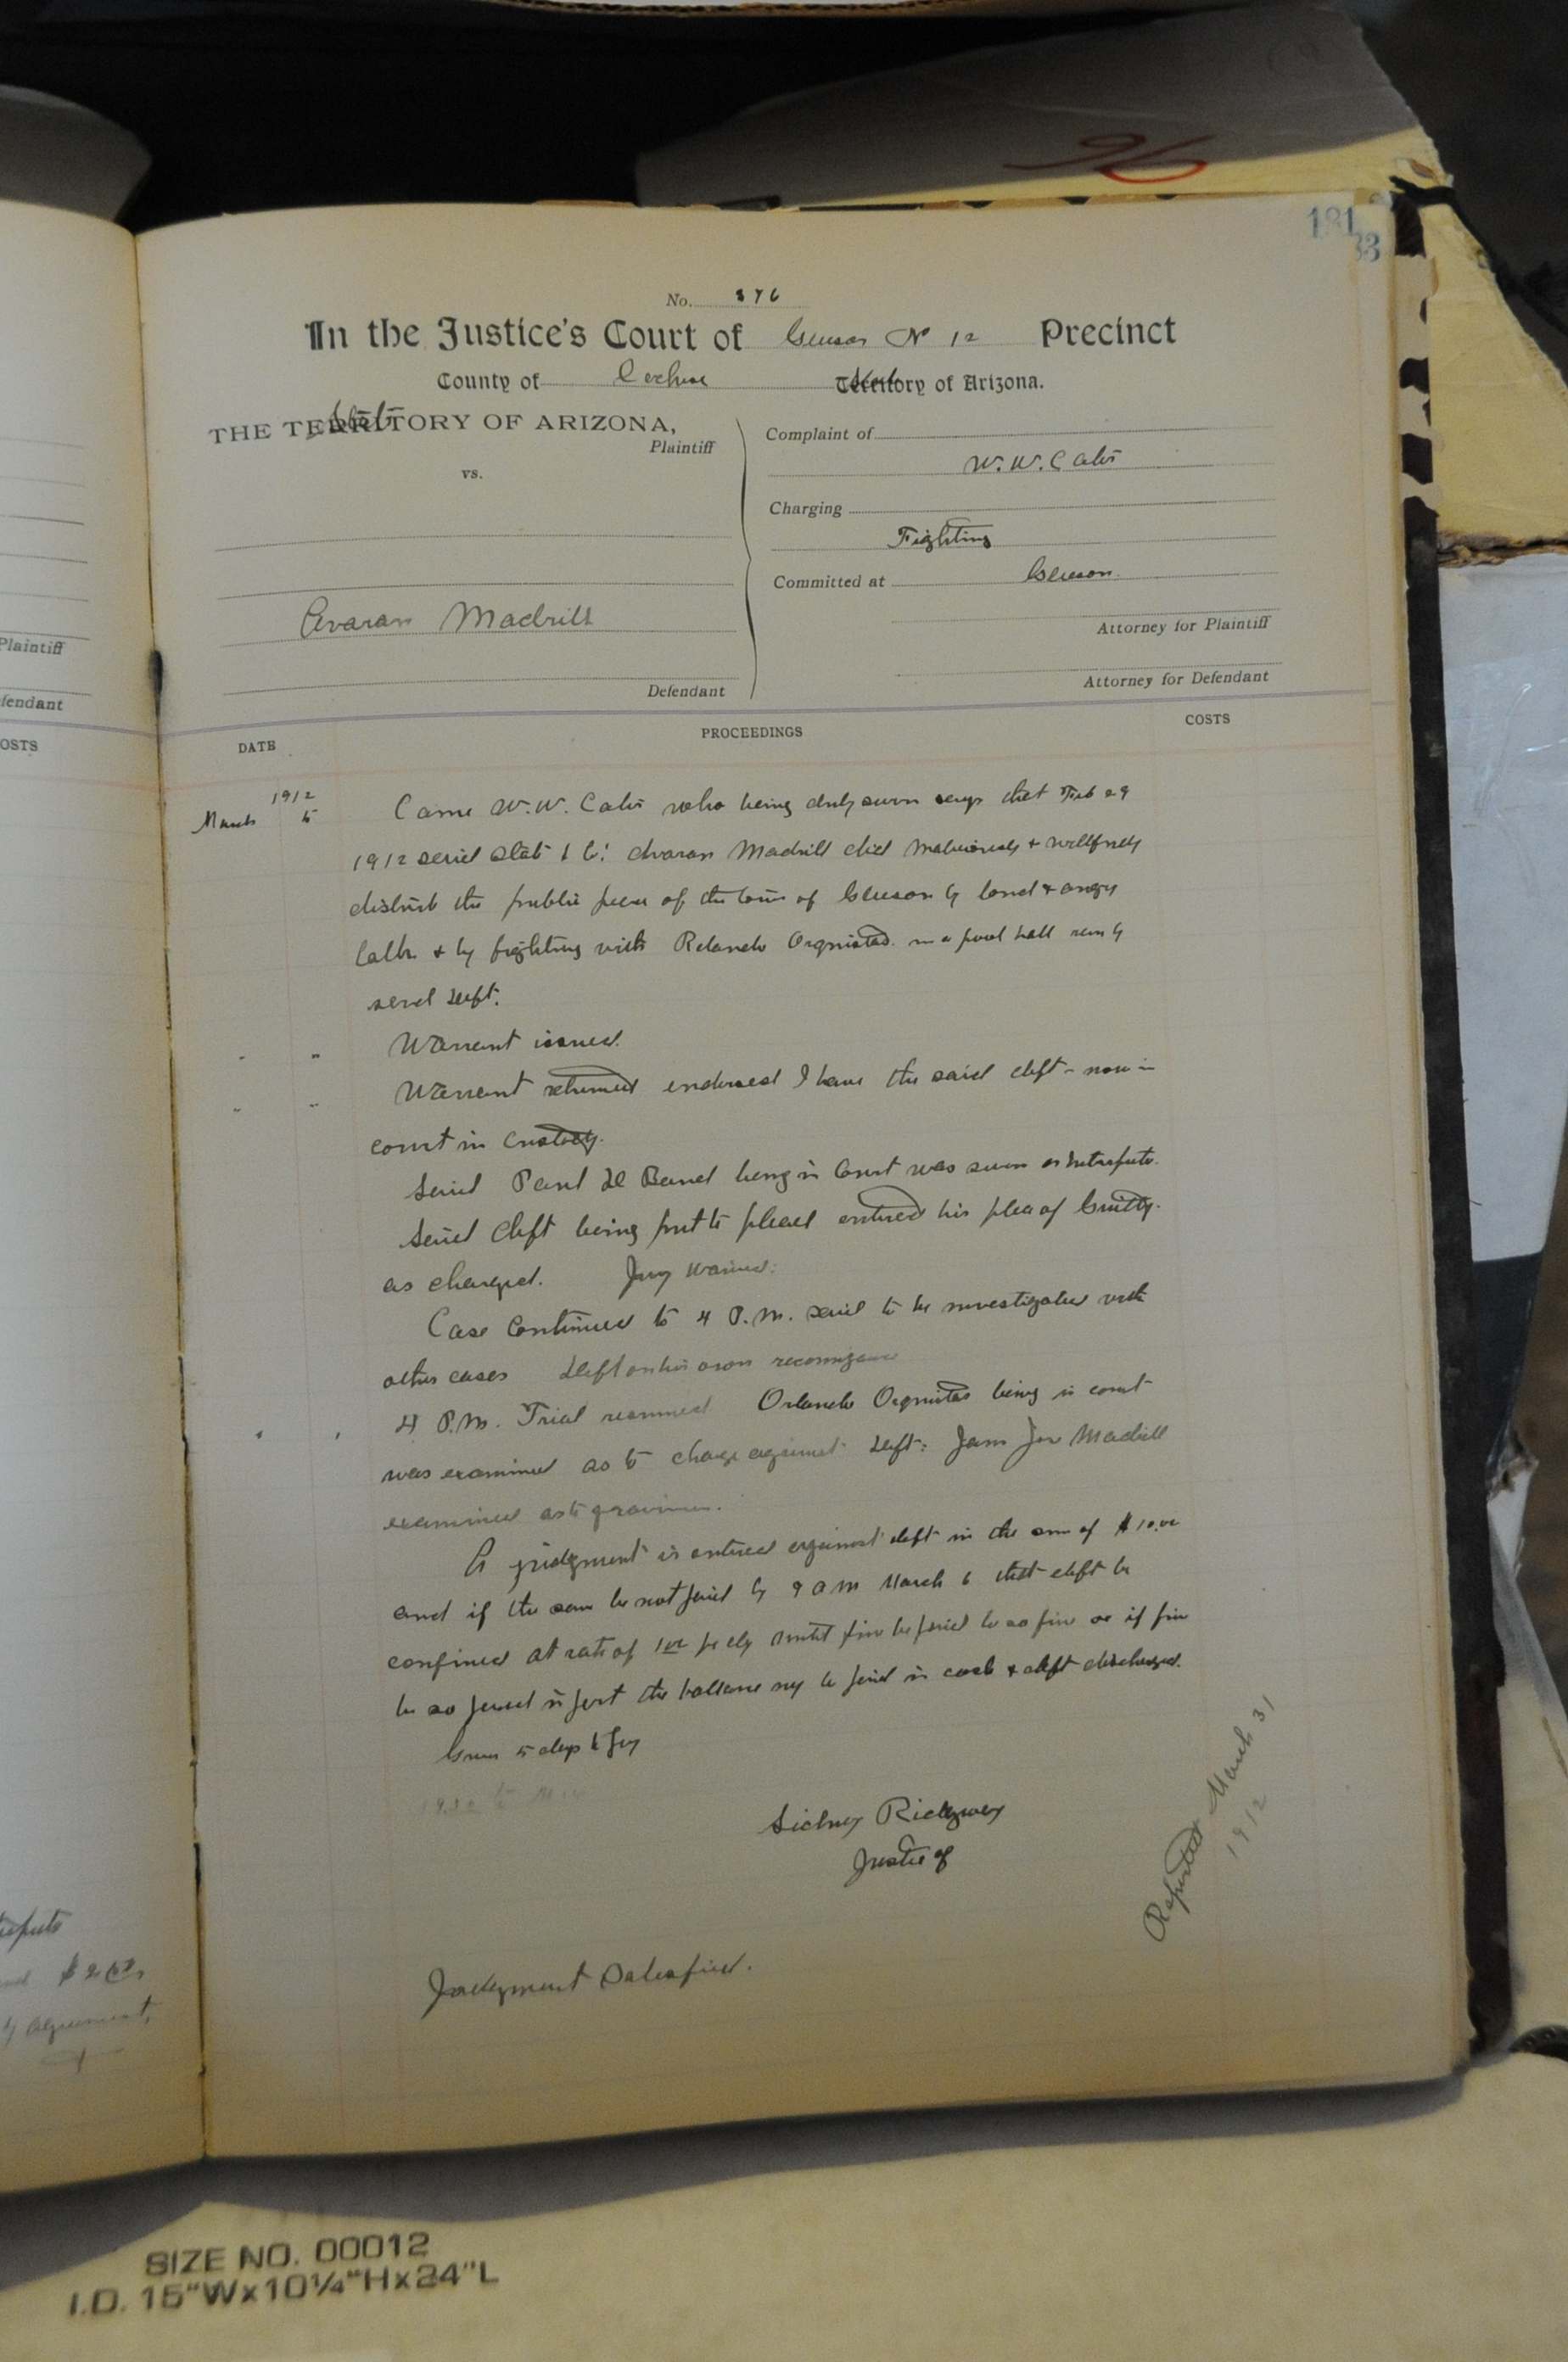 96
181
33
No. 376
In the Justice's Court of Gleeson No 12 Precinct
County of Cochise State Territory of Arizona.
THE TERRITORY OF ARIZONA,
State
Plaintiff
vs.
Madrill
Defendant
Complaint of
W. W. Cates
Charging
Fighting
Committed at Gleeson
Attorney for Plaintiff
Attorney for Defendant
DATE
PROCEEDINGS
COSTS
1912
March 5
Came W. W. Cates who being duly sworn says that Feb 29
1912 said State & Co. Madrill did maliciously & willfully
disturb the public peace of the town of Gleeson by loud & angry
talk & by fighting with Orlando in a pool hall run by
said deft.
" " Warrant issued.
" " Warrant returned endorsed I have the said deft - now in
court in custody.
Said Paul being in Court was sworn as Interpreter.
Said deft being put to plead entered his plea of Guilty.
as charged. Jury waived.
Case continued to 4 P.M. said to be investigated with
other cases deft on his own recognizance
4 P.M. Trial resumed. Orlando being in court
was examined as to charge against deft: Madrill
examined as to
A judgment is entered against deft in the sum of $10.00
and if the same be not paid by 9 a m March 6 that deft be
confined at rate of 1.00 per day until fine be paid be so fine or if fine
be so paid in part the ballance may be paid in cash & deft discharged.
Given 5 days to pay
Sidney Ridgway
Justice of
Reported March 31
1912
Judgment Satisfied.
Plaintiff
efendant
OSTS
$2.00
by agreement,
SIZE NO. 00012
I.D. 15"Wx10¼"Hx24"L